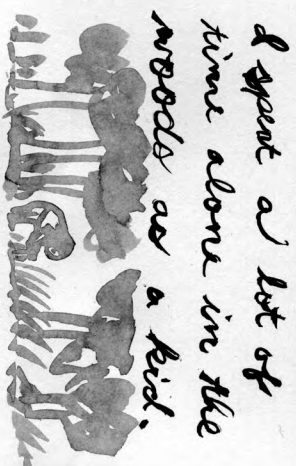 I spent a lot of
time alone in the
woods as a kid.